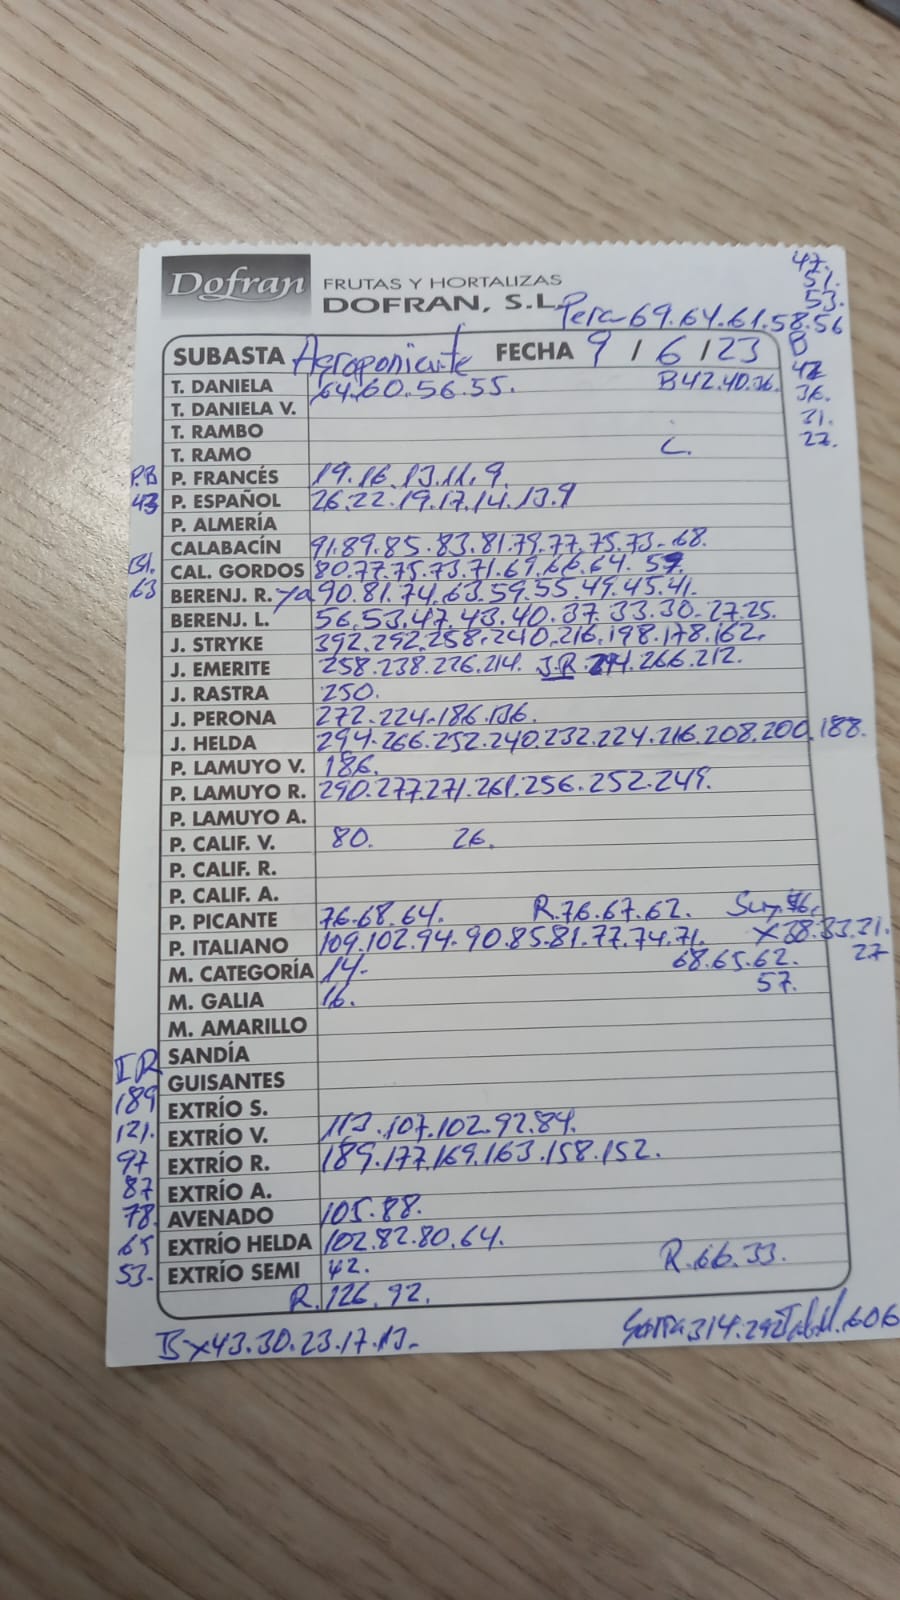 47.
51.
53.
Dofran FRUTAS Y HORTALIZAS
DOFRAN, S.L.
Pera 69.64.61.58.56
SUBASTA Agroponiente FECHA 9 / 6 / 23 B
T. DANIELA 64.60.56.55. B 42.40.36. 42
T. DANIELA V. 36.
T. RAMBO 31.
T. RAMO C. 27.
P.B P. FRANCÉS 19.16.13.11.9.
43 P. ESPAÑOL 26.22.19.17.14.13.9
P. ALMERÍA
CALABACÍN 91.89.85.83.81.79.77.75.73-68.
Bl. CAL. GORDOS 80.77.75.73.71.69.66.64.59.
63 BERENJ. R. ya 90.81.74.63.59.55.49.45.41.
BERENJ. L. 56.53.47.43.40.37.33.30-27.25.
J. STRYKE 392.292.258.240.216.198.178.162.
J. EMERITE 258.238.226.214. J.R. 266.212.
J. RASTRA 250.
J. PERONA 272-224-186.136.
J. HELDA 294.266.252.240.232.224.216.208.200.188.
P. LAMUYO V. 186.
P. LAMUYO R. 290.277.271.261.256.252.249.
P. LAMUYO A.
P. CALIF. V. 80. 26.
P. CALIF. R.
P. CALIF. A.
P. PICANTE 76.68.64. R.76.67.62.
P. ITALIANO 109.102.94-90.85.81.77.74.71. X38.33.21.
M. CATEGORÍA 14- 68.65.62. 27
M. GALIA 16. 57.
M. AMARILLO
I R SANDÍA
GUISANTES
189 EXTRÍO S.
121. EXTRÍO V. 113.107.102.92.84.
97 EXTRÍO R. 189.177.169.163.158.152.
87 EXTRÍO A.
78. AVENADO 105.88.
65 EXTRÍO HELDA 102.82.80.64.
53- EXTRÍO SEMI 42. R.66.33.
R.126.92.
Bx43.30.23.17.13-
314.292 606